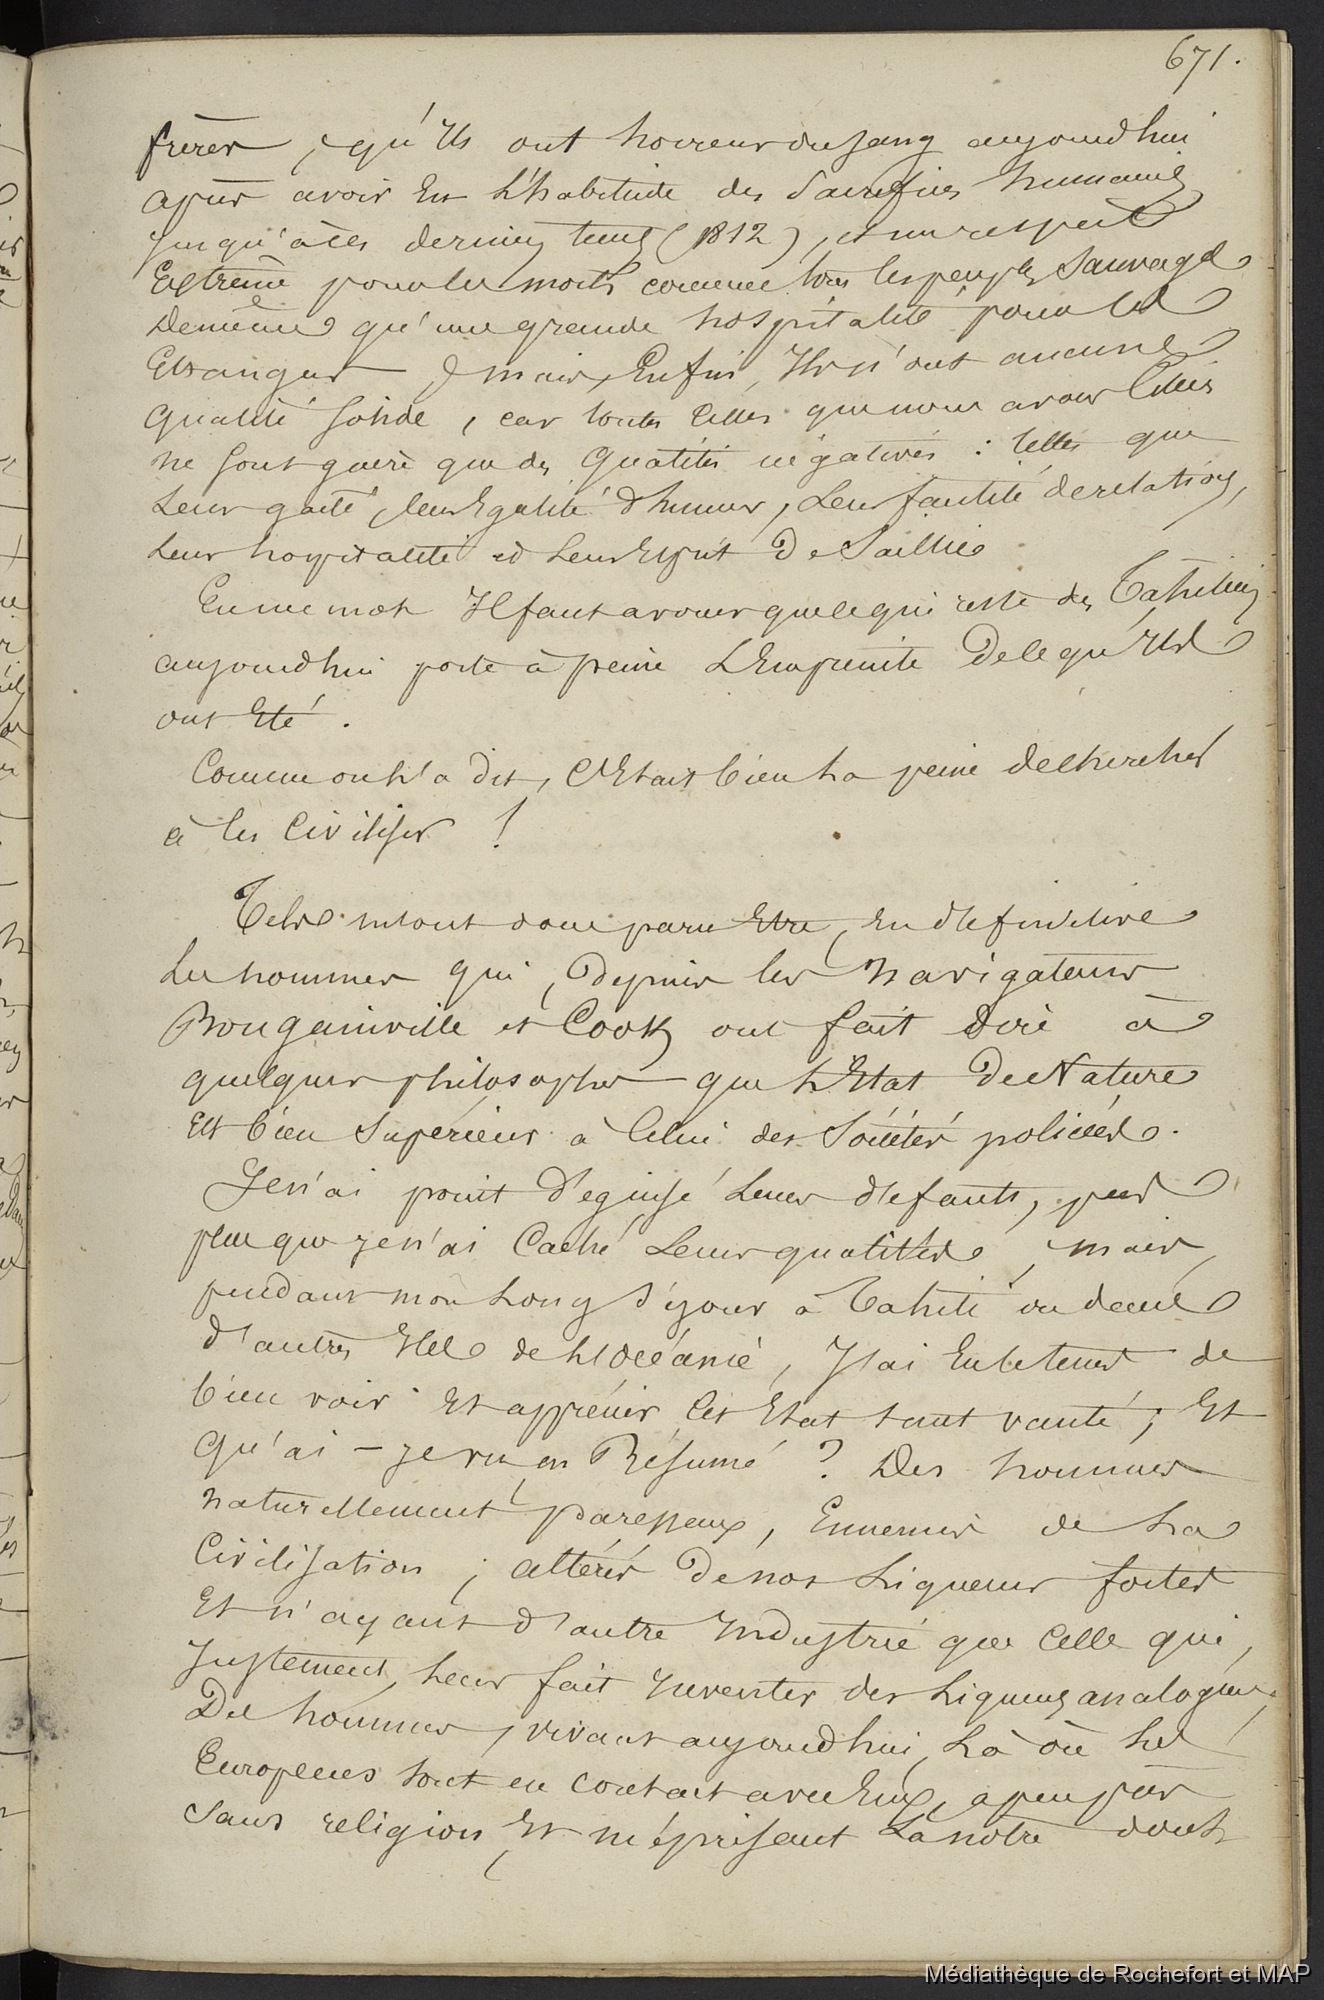 671.
frères, qu'Ils ont horreur du sang aujourd'hui
après avoir Eu L'habitude des Sacrifices humains
jusqu'à ces derniers tems (1812), et un respect
Extrême pour les morts comme tous les peuples Sauvages
De même qu'une grande hospitalité pour les
Etrangers; mais, Enfin, Ils n'ont aucune
qualité solide, car toutes celles que nous avons Citées
ne sont guère que des qualités négatives : telles que
Leur gaité, leur Egalité d'humeur, Leur facilité de relations,
Leur hospitalité et Leur Esprit De Saillie.
En un mot Il faut avouer que ce qui reste des Tahitiens
aujourd'hui porte à peine L'Empreinte De ce qu'Ils
ont Eté.
Comme on L'a dit, C'Etait bien La peine de chercher
à les Civiliser !
Tels m'ont donc paru Etre, En définitive
Les hommes qui, Depuis les Navigateurs
Bougainville et Cook, ont fait dire à
quelques philosophes que L'Etat De Nature
Est bien Supérieur à Celui des Sociétés policées.
Je n'ai point Déguisé Leurs défauts, pas
plus que je n'ai Caché Leurs qualités, mais,
pendant mon Long Séjour à Tahiti ou dans
d'autres Iles de L'Océanie, J'ai Eu le tems de
bien voir Et apprécier Cet Etat tant vanté; Et
qu'ai-je vu, en Résumé ? Des hommes
naturellement paresseux, Ennemis de La
Civilisation; altérés De nos Liqueurs fortes
Et n'ayant d'autre Industrie que Celle qui,
Justement, Leur fait Inventer des Liqueurs analogues;
Des hommes, vivant aujourd'hui, Là où Les
Européens sont en contact avec Eux, à peu près
Sans religion, Et méprisant La nôtre dont
Médiathèque de Rochefort et MAP